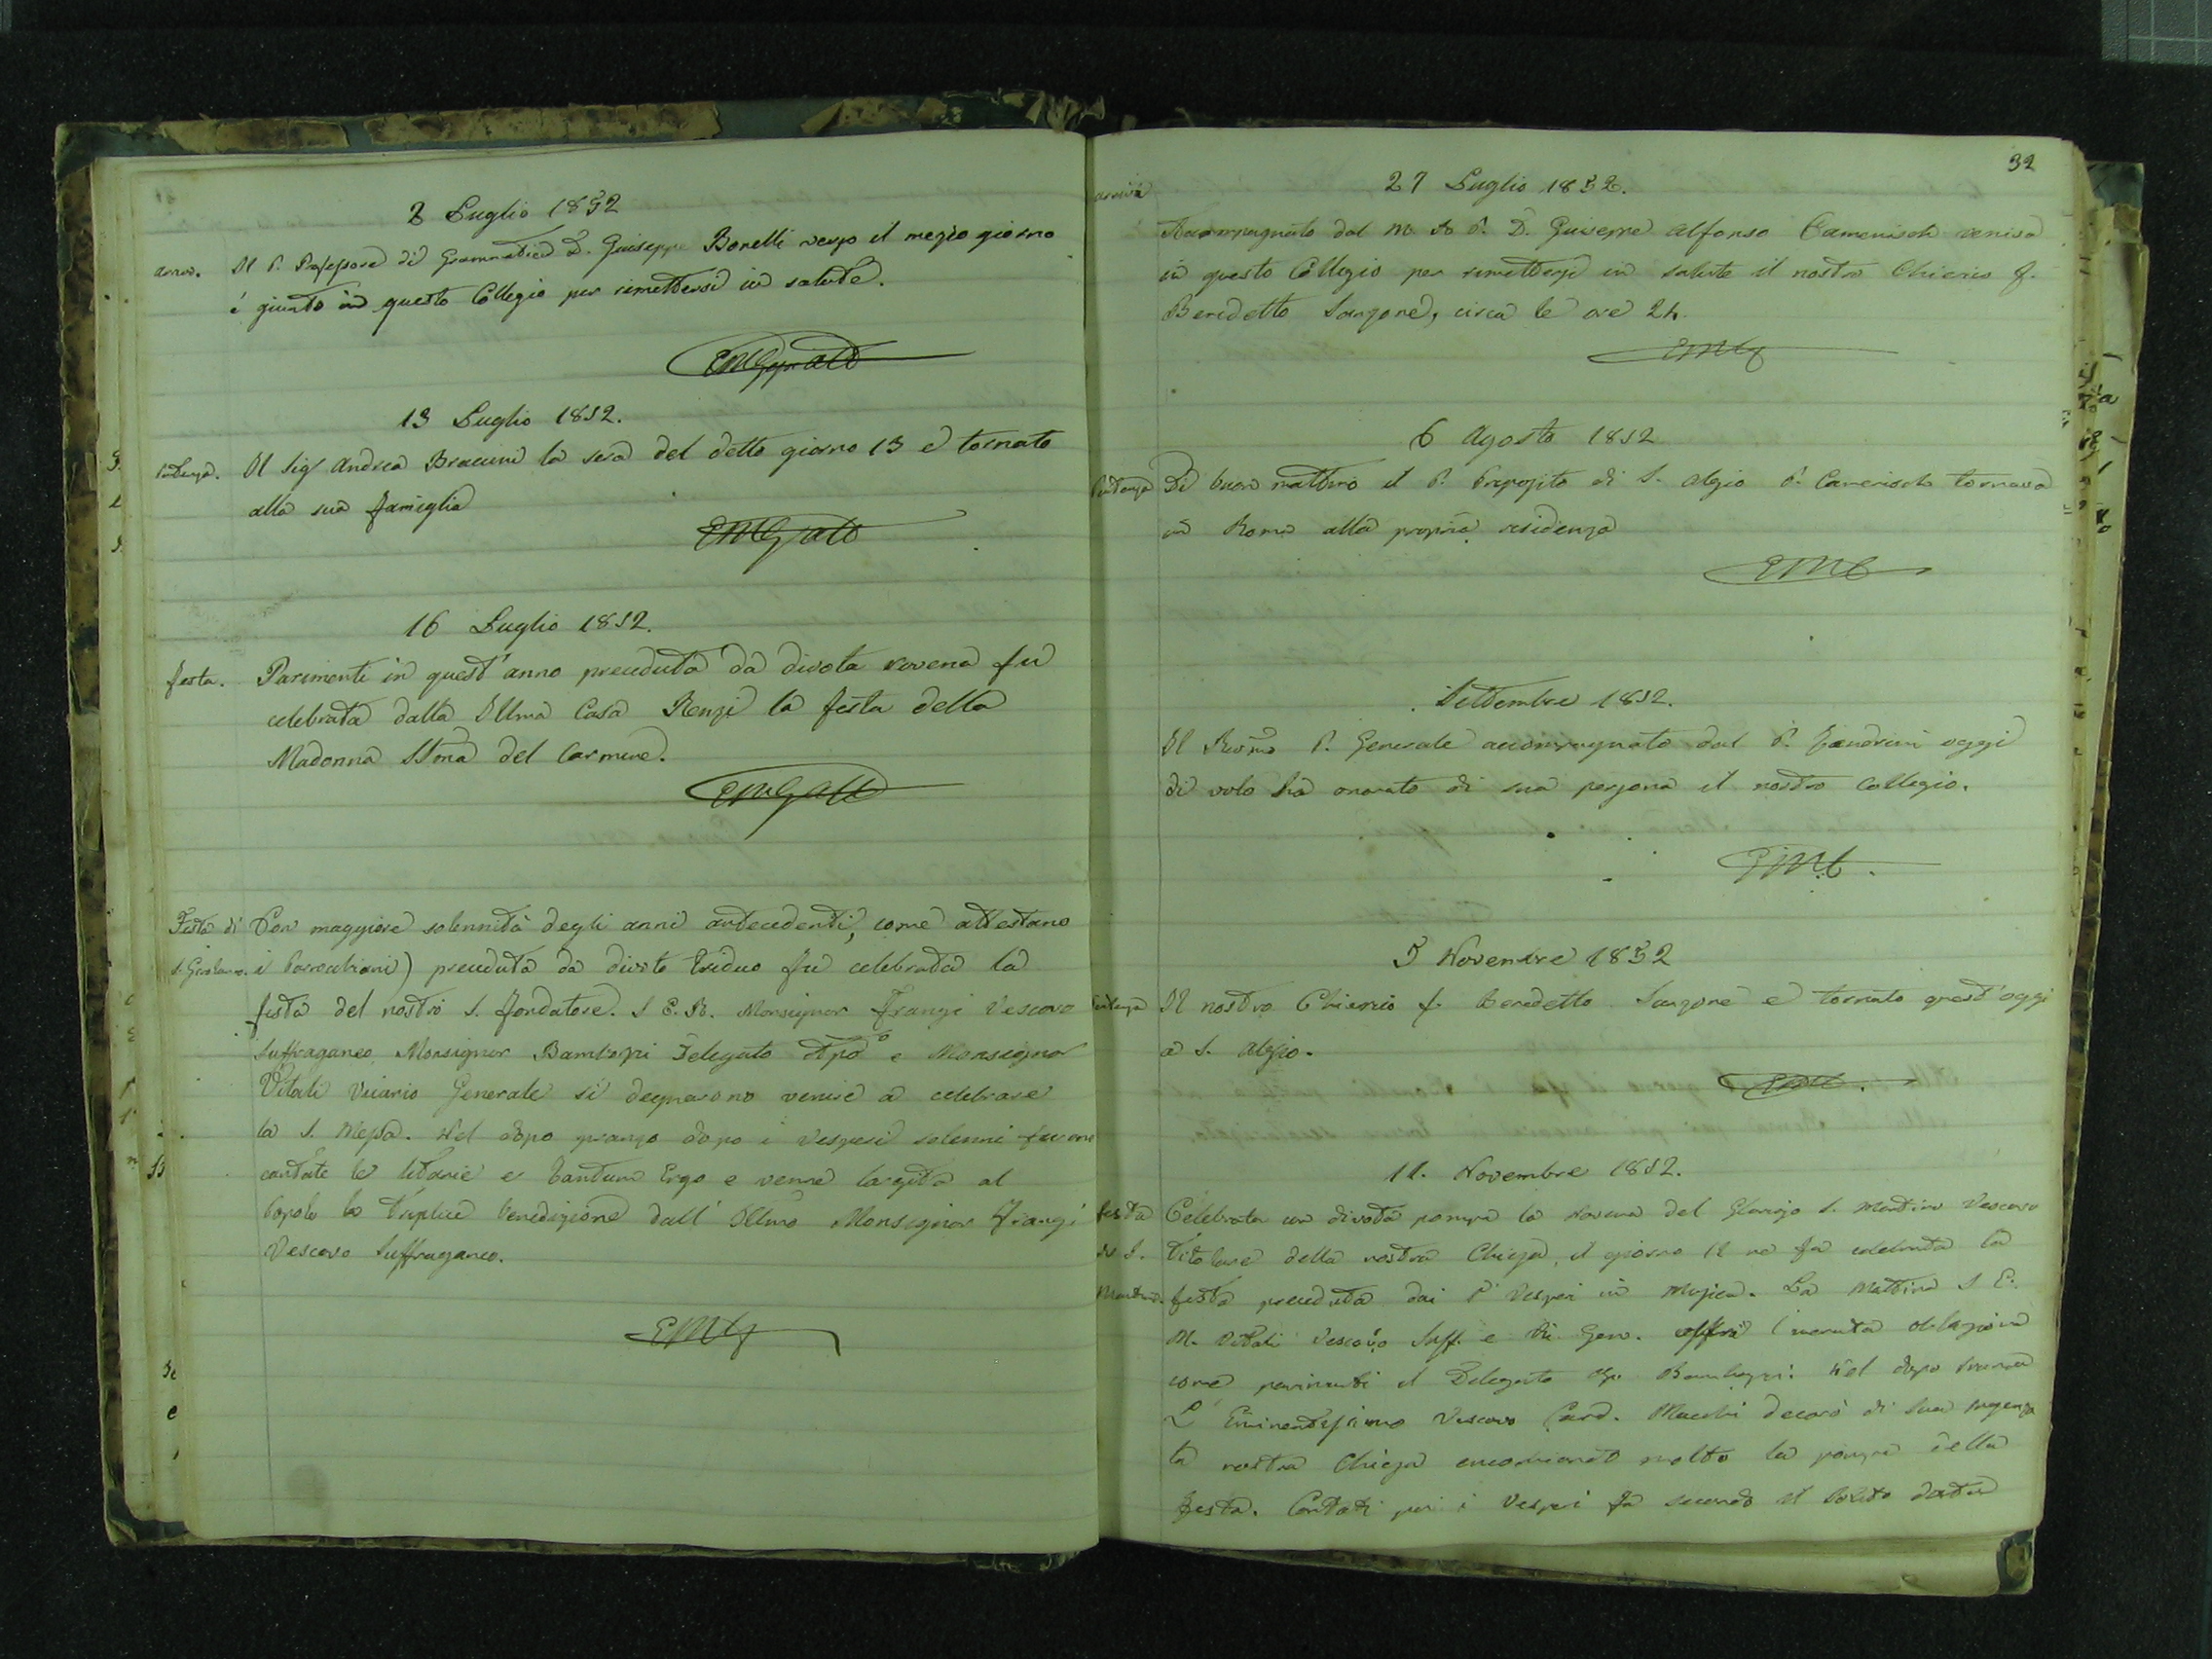 2 Luglio 1852
arrivo. Il P. Professore di Grammatica D. Giuseppe Borelli verso il mezzo giorno
é giunto in questo Collegio per rimettersi in salute.
EMGgnatt
13 Luglio 1852.
Partenza. Il Sigr Andrea Braccini la sera del detto giorno 13 é tornato
alla sua famiglia
EMGatt
16 Luglio 1852.
festa. Parimenti in quest'anno preceduta da divota novena fu
celebrata dalla Illma Casa Renzi la festa della
Madonna SSma del Carmine.
EMGatt
Festa di Con maggiore solennità degli anni antecedenti, come attestano
S. Girolamo. i Parrochiani) preceduta da divoto triduo fu celebrata la
festa del nostro S. fondatore. S E. R. Monsignor Frangi Vescovo
Suffraganeo Monsignor Delegato Apo e Monsignor
Vitali Vicario Generale si degnarono venire a celebrare
la S. Messa. Nel dopo pranzo dopo i Vesperi solenni furono
cantate le litanie e Tantum Ergo e venne largita al
Popolo la triplice benedizione dall' Illmo Monsignor Frangi
Vescovo Suffraganeo.
EMG
32
27 Luglio 1852.
arrivo
Accompagnato dal M. R. P. D. Giuseppe Alfonso Camenisch veniva
in questo Collegio per rimettersi in salute il nostro Chierico f.
Benedetto Sanzone, circa le ore 24.
EMG
6 Agosto 1852
Partenza Di buon mattino il P. Preposito di S. Alesio P. Camenisch tornava
in Roma alla propria residenza
EMG
Settembre 1852.
Il Revmo P. Generale accompagnato dal P. oggi
di volo ha onorato di sua persona il nostro Collegio.
EMG.
5 Novembre 1852
Partenza Il nostro Chierico f. Benedetto Sanzone é tornato quest'oggi
a S. Alessio.
EMG.
11. Novembre 1852.
festa Celebrata con divota pompa la novena del Glorioso S. Martino Vescovo
di S. Titolare della nostra Chiesa, il giorno 11 ne fu celebrata la
Martino. festa preceduta dai P' Vesperi in Musica. La Mattina S E.
M. Vitali Vescovo Suff. e Vic. Gen. offrì l'incruta oblazione
come parimenti il Delegato Ap. Nel dopo
L' Eminentissimo Vescovo Card. Macchi decorò di sua presenza
la nostra Chiesa encomiando molto la pompa della
festa. Cantati poi i Vesperi fu secondo il solito data